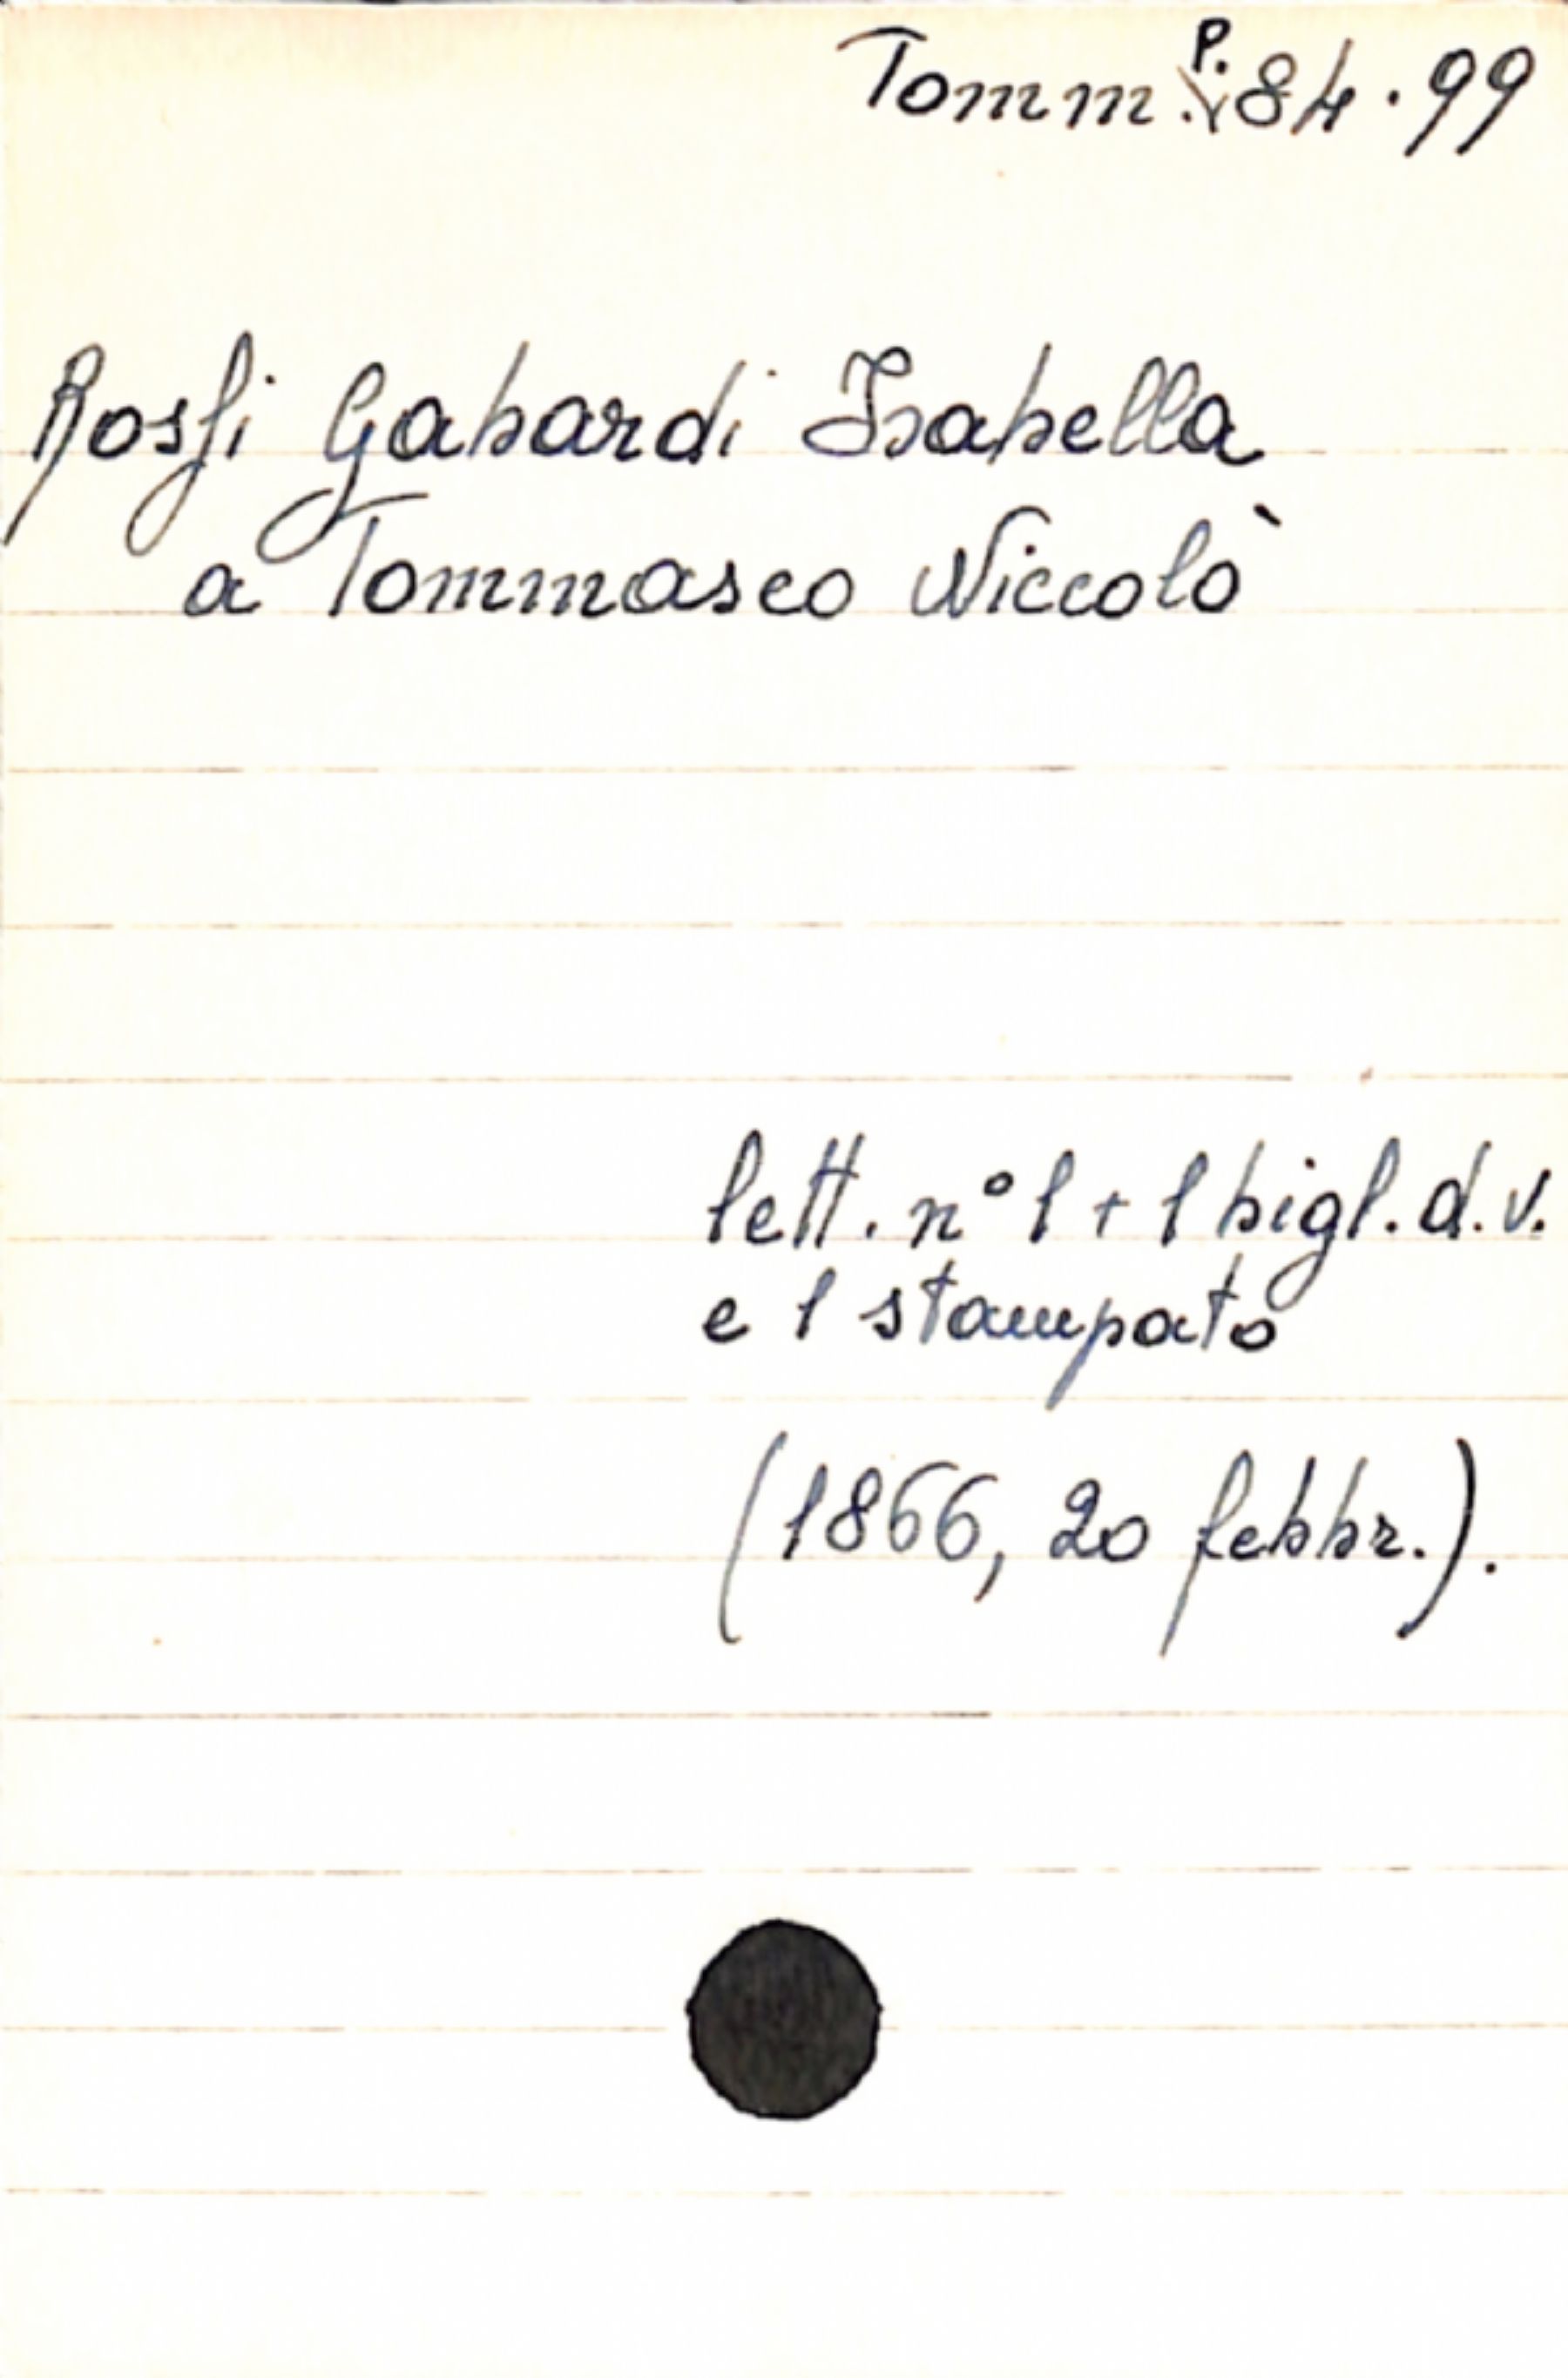 Tomm. P. 84.99
Rossi Gabardi Isabella
a Tommaseo Niccolò
lett. n° 1 + 1 bigl. d. v.
e 1 stampato
(1866, 20 febbr.).